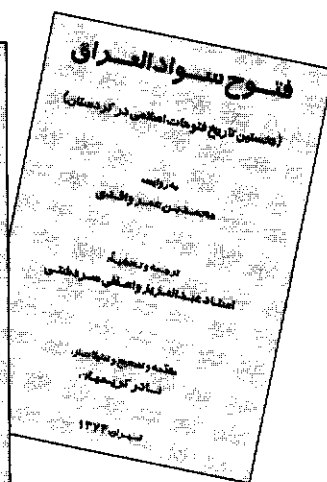 فتوح سواد العراق
(نخستین تاریخ فتوحات اسلامی در کردستان)
به روایت
محمد بن عمر واقدی
ترجمه و تحقیق
استاد عبدالعزیز واعظی سردشتی
مقدمه و تصحیح و
نادر کریمیان
تهران ۱۳۷۳